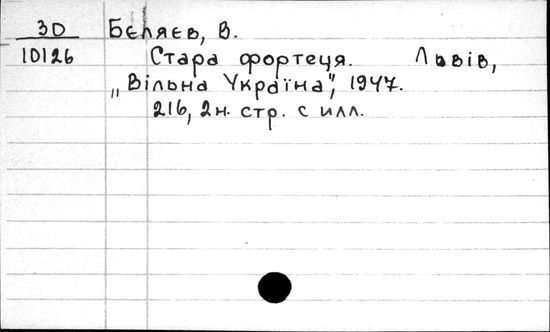 30 Бєляєв, В.
10126 Стара фортеця. Львів,
„Вільна Україна", 1947.
216, 2н. стр. с илл.